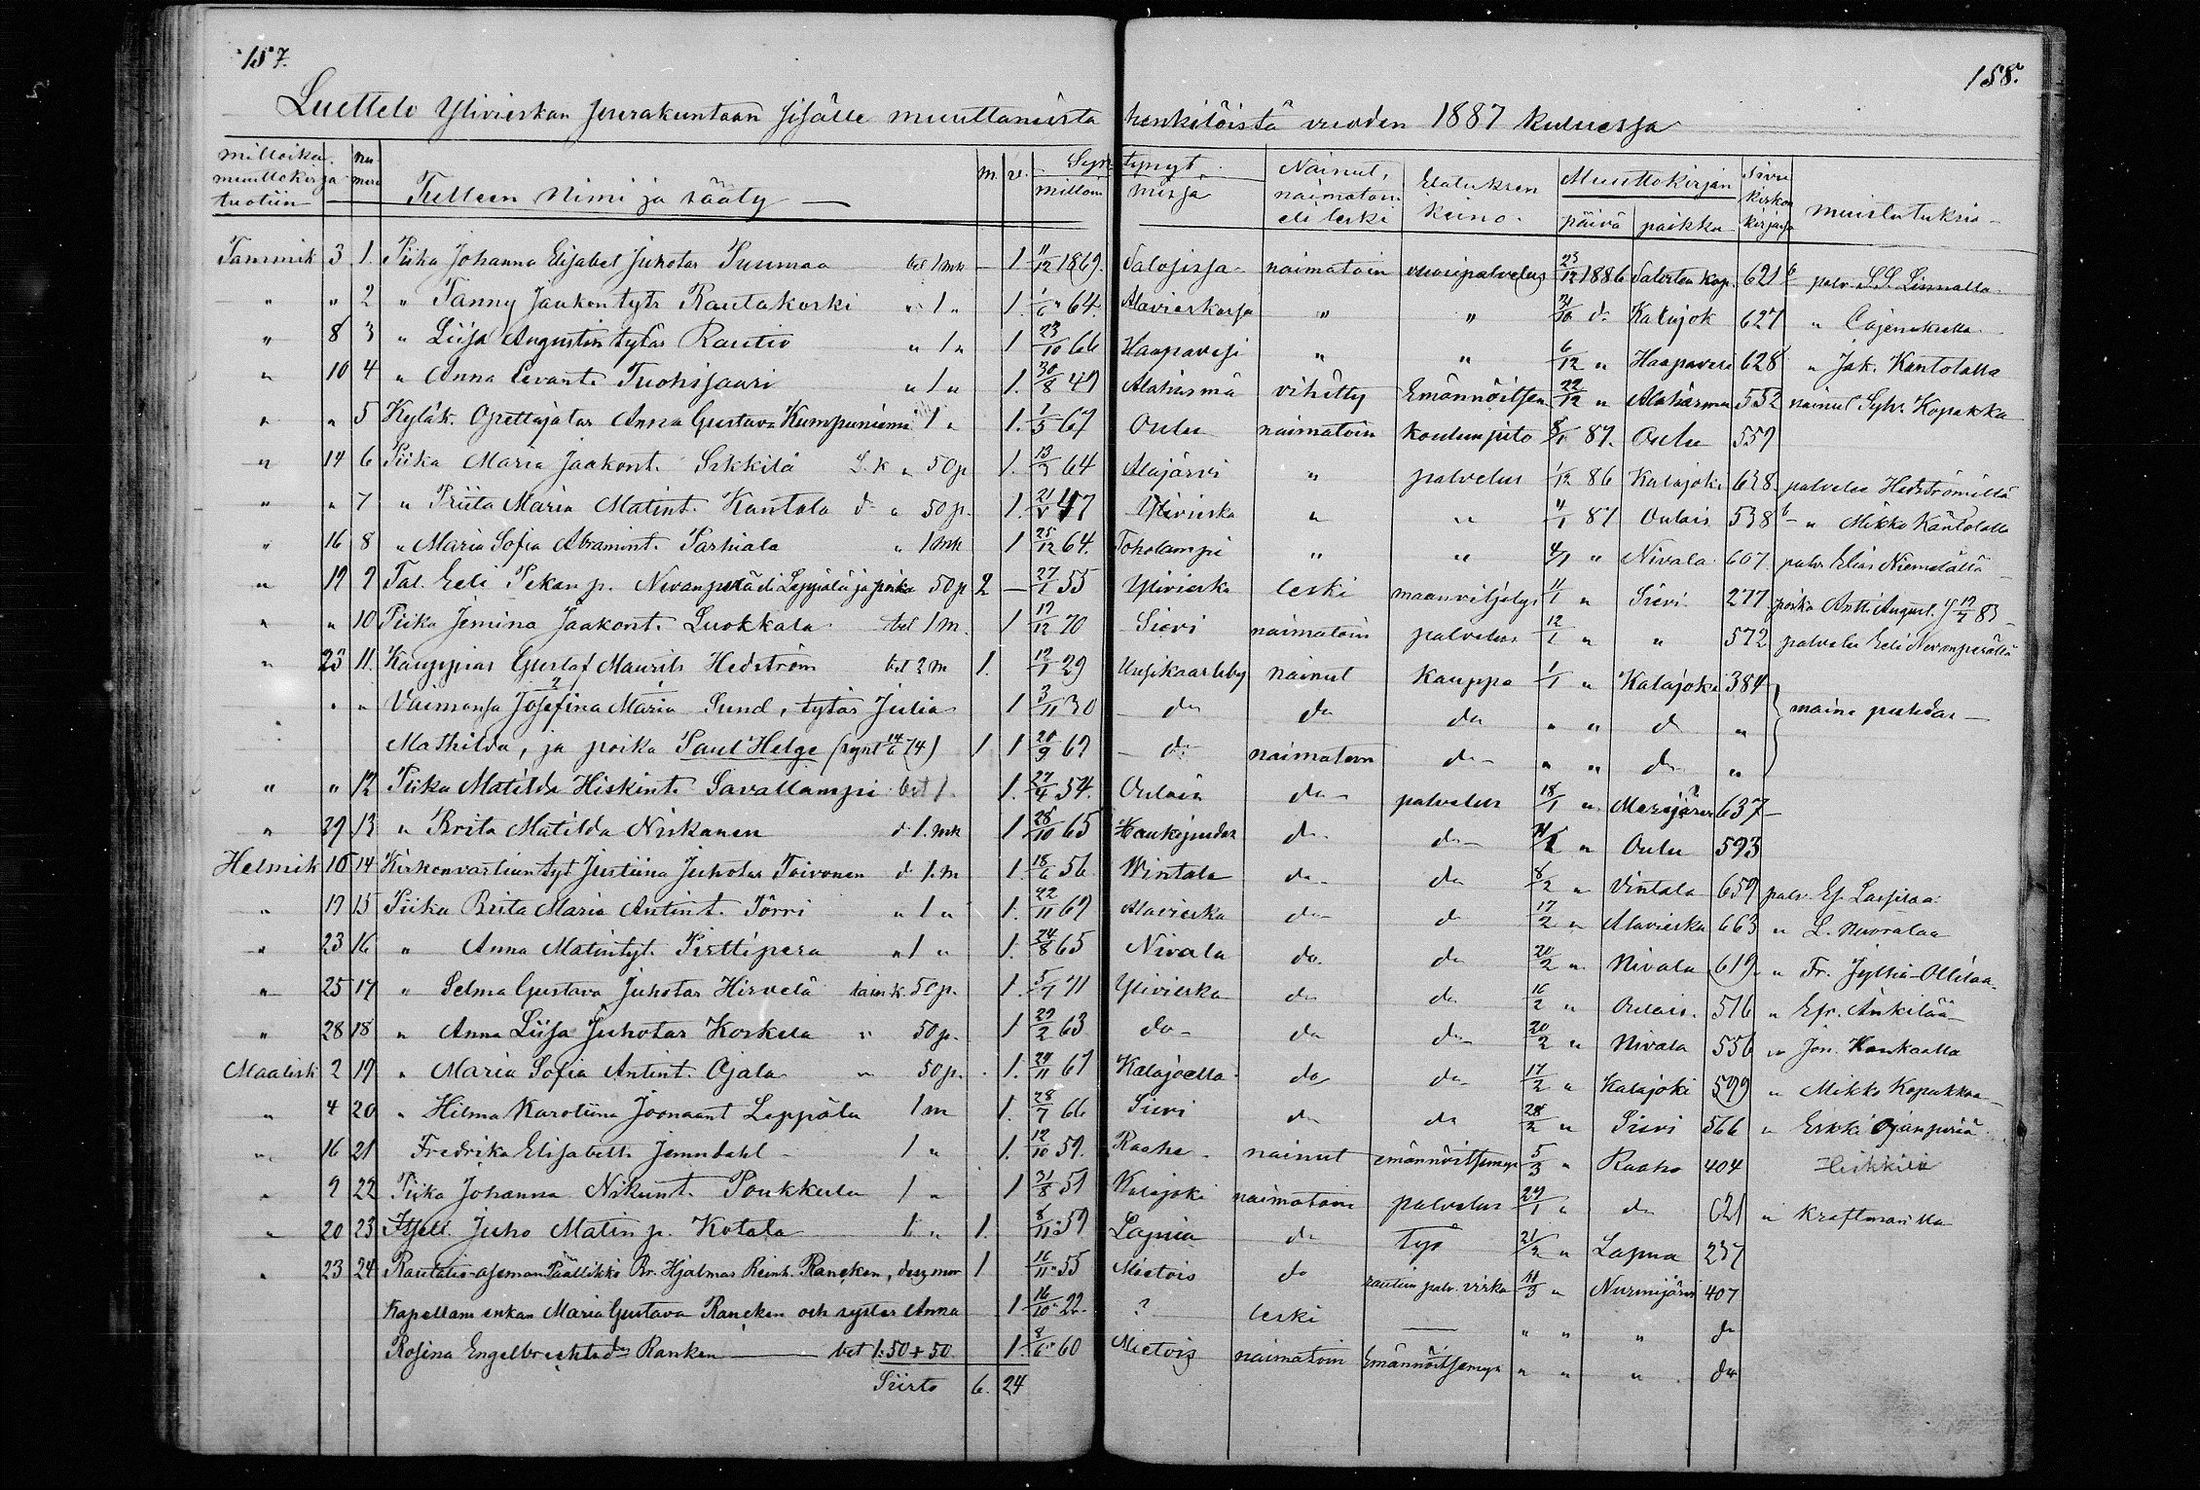 157. 158.
Luettelo Ylivieskan seurakuntaan sisälle muuttaneista henkilöistä vuoden 1887 kuluessa
milloika muuttokirja tuotiin | nu mero | Tulleen nimi ja sääty | m. | v. | Syn- tynyt millon | missä | Nainut, naimatoin eli leski | Elatuksen keino. | Muuttokirjan päivä | paikka | Sivu kirkon kirjassa | muistutuksia
Tammik 3 1. Piika Johanna Elisabet Juhotar Puumaa bet 1 mk — 1 11/12 1869. Salossa naimatoin vuosipalvelus 23/12 1886 Saloisten kap. 621 b palv. S.S. Linnalla
" " 2 " Fanny Jaakontytr Rautakoski " 1 " 1. 1/6 64. Alavieskassa " " d. Kalajok 627 " Cajenukella
" 8 3 " Liisa Augustin tytär Rautio " 1 " 1 23/10 66 Haapavesi " " 6/12 " Haapavesi 628 " Jak. Kantolalla
" 10 4 " Anna Evert. Tuohisaari " 1 " 1. 30/8 49 Alahärmä vihitty Emännöitsen 22/12 " Alahärma 552 nainut Sylv. Kopakka
" " 5 Kyläk. Opettajatar Anna Gustava Kumpuniemi 1 " 1. 1/5 67 Oulu naimatoin koulunpito 8/1 87. Oulu 559
" 14 6 Piika Maria Jaakont. Sikkilä L.k " 50 p 1. 13/3 64 Alajärvi " palvelus 1/12 86 Kalajoki 638 palvelee Hedströmillä
" " 7 " Priita Maria Matint. Kantola d " 50 p. 1. 21/5 47 Ylivieska " " 4/1 87 Oulais 538 b " Mikko Kantolalla
" 16 8 " Maria Sofia Abramint. Parhiala " 1 mk 1 25/12 64. Toholampi " " 4/1 " Nivala 607 palv Elias Niemelällä
" 19 9 Tal. Eeli Pekan p. Nivanperä eli Leppälä ja poika 50 p 2 — 27/1 55 Ylivieska leski maanviljelys 11/1 " Sievi 277 poika Antti August. s 83
" " 10 Piika Jemina Jaakont. Luokkala bet 1 m. 1 19/12 70 Sievi naimatoin palvelus 12/1 " " 572 palvelee Eeli Nivanperällä
" 23 11. Kauppias Gustaf Maurits Hedström bet 2 m 1. 12/1 29 Uusikaarleby nainut kauppa 1/1 " Kalajoki 384
" " Vaimonsa Josefina Maria Sund, tytär Julia 1 3/11 30 do do do " " d " maine puhdas
Mathilda, ja poika Paul Helge (synt 14/6 74) 1 1 20/9 69 do naimatoin do " " do "
" " 12 Piika Matilda Hiskint. Savallampi bet 1. 1. 27/4 54. Oulais do palvelus 18/1 " Merijärvi 637
" 29 13 " Brita Matilda Niskanen d. 1. mk 1. 28/10 65 Haukipudas do do " Oulu 593
Helmik 10 14 Kirkonvartian tyt Justiina Juhotar Toivonen d 1. m 1. 18/6 56 Wintala do do 8/2 " Vintala 659 palv. Ef. Lassilaa
" 19 15 Piika Brita Maria Antint. Törri " 1 " 1. 22/11 69 Alavieska do d 17/2 " Alavieska 663 " L. Nuoralaa
" 23 16 " Anna Matintyt. Pirttipera " 1 " 1. 24/8 65 Nivala do. do 20/2 " Nivala 619 " Fr. Jylhä-Ollilaa
" 25 17 " Selma Gustava Juhotar Hirvelä lain k. 50 p. 1. 5/7 71 Ylivieska do do 16/2 " Oulais. 516 " Efr. Ankilää
" 28 18 " Anna Liisa Juhotar Korkela " 50 p. 1 29/2 63 do do do 20/2 " Nivala 556 " Jon. Kankaalla
Maalisk 2 19 " Maria Sofia Antint. Ojala " 50 p. 1. 24/11 67 Kalajoella do do 17/2 " Kalajoki 599 " Mikko Kopakkaa
" 4 20 " Hilma Karoliina Joonaant Leppälä 1 m 1. 28/7 66 Sievi do do 28/2 " Sievi 566 " Erkki Ojanperä
" 16 21 Fredrika Elisabeth Jernndahl 1 " 1. 12/10 59. Raahe nainut emännöitsemys 5/3 " Raahe 404 Heikkilä
" 9 22 Piika Johanna Nikunt. Poukkula 1 " 1 31/8 51 Kalajoki naimatoin palvelus 29/1 " do 621 " Kraftman'illa
" 20 23 Itsell. Juho Matin p. Kotala 1 " 1. 8/11 59 Lapua do työ 21/2 " Lapua 237
" 23 24 Rautatie-aseman Päällikkö Br. Hjalmar Reinh. Rancken, dess mor 1 16/11 55 Mietois do rautien palv. virka 11/3 " Nurmijärvi 407
Kapellans enkan Maria Gustava Rancken och syster Anna 1 16/10 22. ? leski — " " " do
Rosina Engelbrechtsdr Ranken — bet 1.50 + 50 1. 8/6 60 Mietois naimatoin Emännöitsemys " " " do
Siirto 6. 24